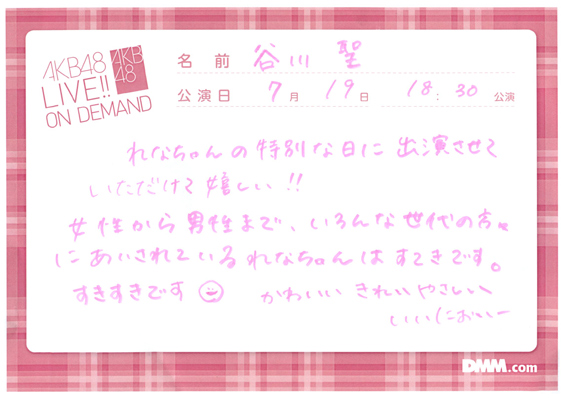 AKB48
LIVE!!
ON DEMAND
AKB
48
名前 谷川 聖
公演日 7月19日 18:30 公演
れなちゃんの特別な日に出演させて
いただけて嬉しい!!
女性から男性まで、いろんな世代の方々
にあいされているれなちゃんはすてきです。
すきすきです
かわいい きれい やさしい
いいにおいー
DMM.com